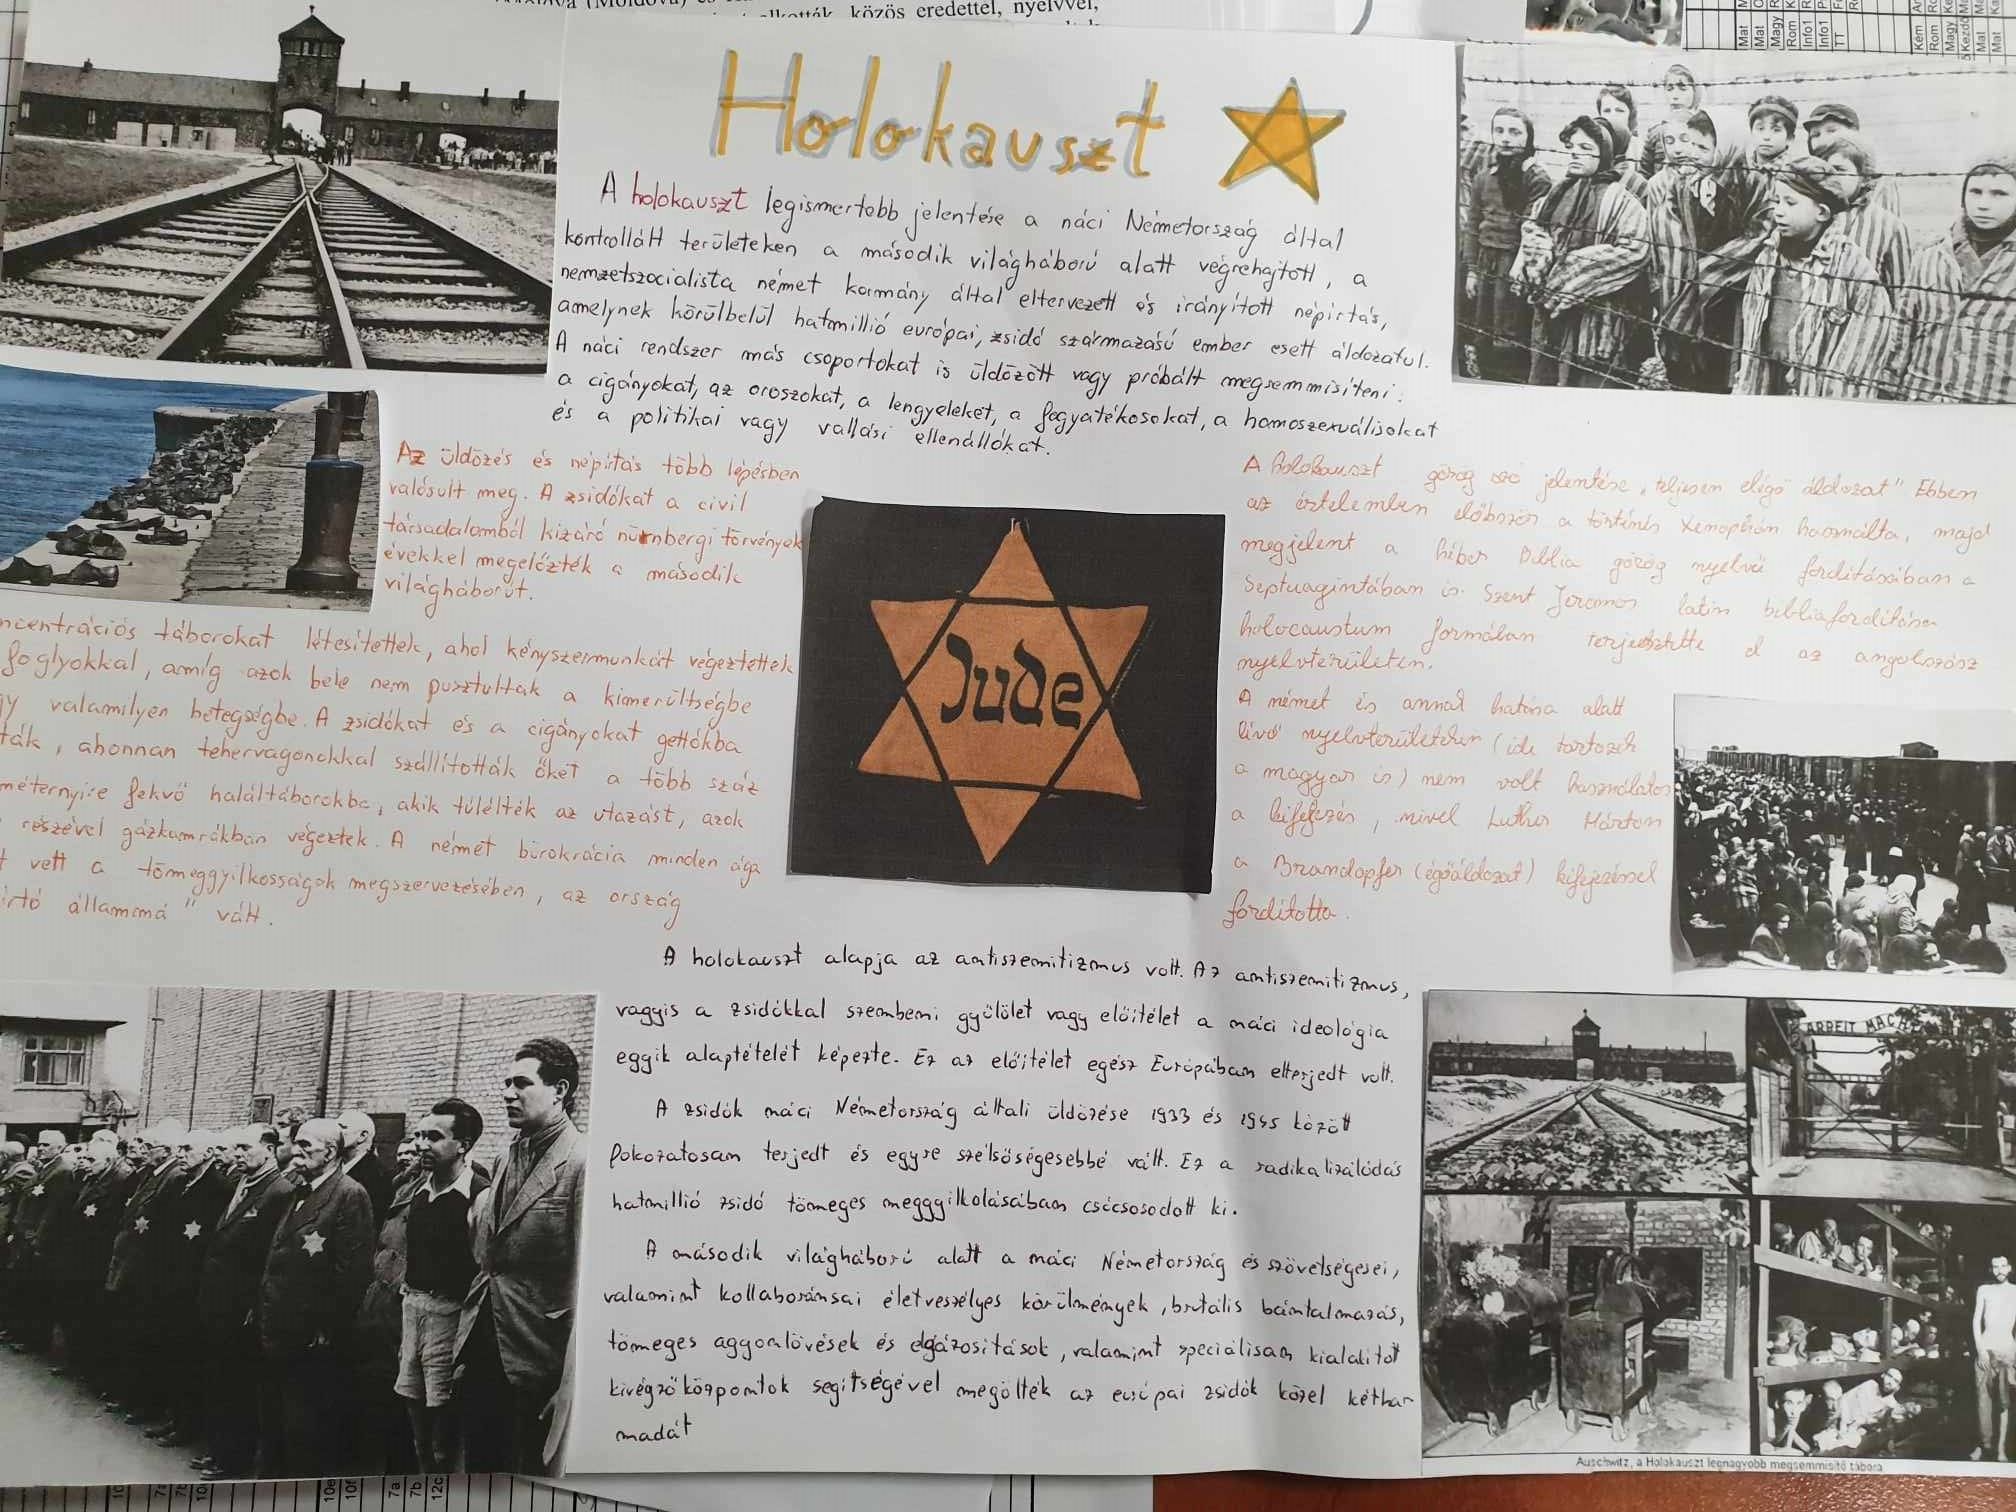 közös eredettel, nyelvvel,
Holokauszt
A holokauszt legismertebb jelentése a náci Németország által
kontrollált területeken a második világháború alatt végrehajtott, a
nemzetszocialista német kormány által eltervezett és irányított népirtás,
amelynek körülbelül hatmillió európai, zsidó származású ember esett áldozatul.
A náci rendszer más csoportokat is üldözött vagy próbált megsemmisíteni:
a cigányokat, az oroszokat, a lengyeleket, a fogyatékosokat, a homoszexuálisokat
és a politikai vagy vallási ellenállókat.
Az üldözés és népirtás több lépésben
valósult meg. A zsidókat a civil
társadalomból kizáró nürnbergi törvények
évekkel megelőzték a második
világháborút.
ncentrációs táborokat létesítettek, ahol kényszermunkát végeztettek
foglyokkal, amíg azok bele nem pusztultak a kimerültségbe
gy valamilyen betegségbe. A zsidókat és a cigányokat gettókba
ták, ahonnan tehervagonokkal szállították őket a több száz
méternyire fekvő haláltáborokba, akik túlélték az utazást, azok
részével gázkamrákban végeztek. A német bürokrácia minden ága
t vett a tömeggyilkosságok megszervezésében, az ország
irtó állammá" vált.
Jude
A holokauszt görög szó jelentése „teljesen elégő áldozat" Ebben
az értelemben először a történés Xenophón használta, majd
megjelent a héber Biblia görög nyelvű fordításában a
Septuagintában is. Szent Jeromos latin bibliafordítása
holocaustum formában terjesztette el az angolszász
nyelvterületen.
A német és annak hatása alatt
lévő nyelvterületeken (ide tartozik
a magyar is) nem volt használatos
a kifejezés, mivel Luther Márton
a Brandopfer (égőáldozat) kifejezéssel
fordította.
A holokauszt alapja az antiszemitizmus volt. Az antiszemitizmus,
vagyis a zsidókkal szembeni gyűlölet vagy előítélet a náci ideológia
egyik alaptételét képezte. Ez az előítélet egész Európában elterjedt volt.
A zsidók náci Németország általi üldözése 1933 és 1945 között
fokozatosan terjedt és egyre szélsőségesebbé vált. Ez a radikalizálódás
hatmillió zsidó tömeges meggyilkolásában csúcsosodott ki.
A második világháború alatt a náci Németország és szövetségesei,
valamint kollaboránsai életveszélyes körülmények, brutális bántalmazás,
tömeges agyonlövések és elgázosítások, valamint speciálisan kialakított
kivégzőközpontok segítségével megölték az európai zsidók közel kéthar
madát
ARBEIT MACHT
Auschwitz, a Holokauszt legnagyobb megsemmisítő tábora